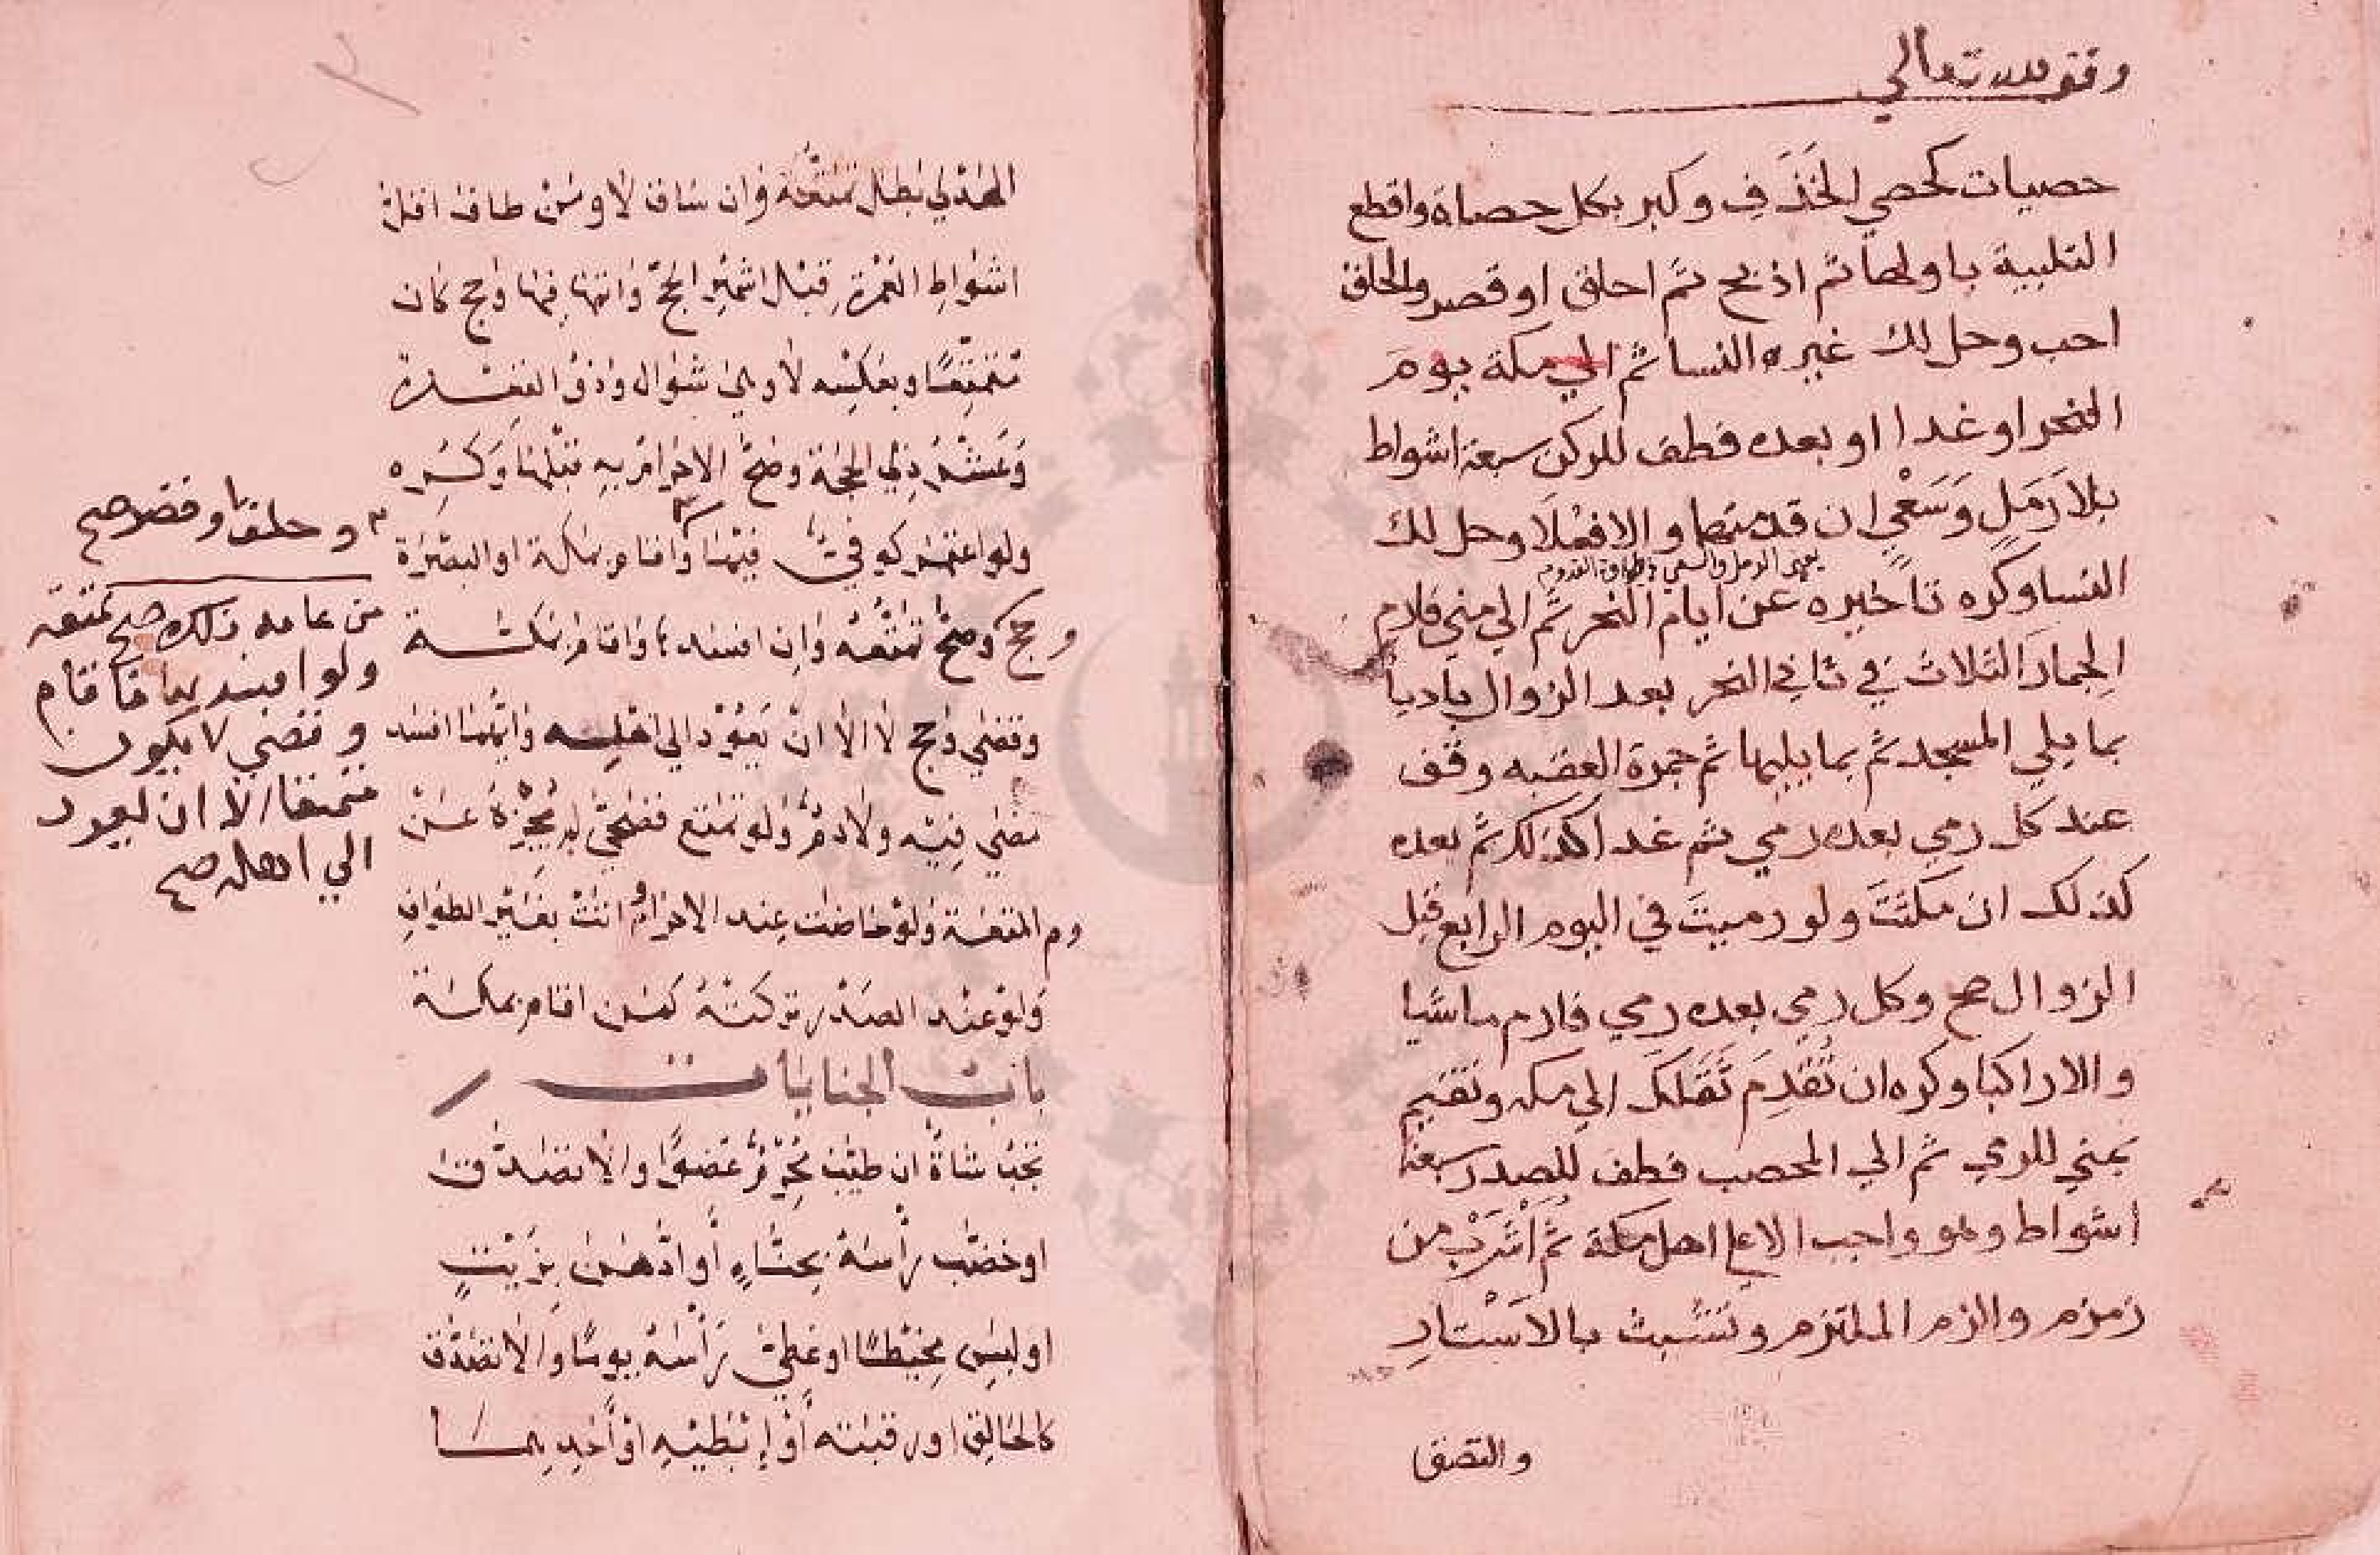 وقف لله تعالي
حصيات كحصي الخَذَفِ وكبر بكل حصاة واقطع
التلبية باولها ثم اذبح ثم احلق او قصر والحلق
احب وحل لك غيره النسا ثم الي مكة يوم
النحر او غدا او بعده فطف للركن سبعة اشواط
بلا رَمَلٍ وَسَعْيٍ ان قدمتهما والا فعْلَا وحل لك
النسا وكره تاخيره عن ايام النحر ثم الي مني فارم
الجمار الثلاث في ثاني النحر بعد الزوال باديا
بما يلي المسجد ثم بما يليها ثم جمرة العقبه وقف
عند كل رمي بعده رمي ثم غدا كذلك ثم بعده
كذلك ان مكثتَ ولو رميتَ في اليوم الرابع قبل
الزوال صح وكل رمي بعده رمي فارم ماشيا
والا راكبا وكره ان تُقَدِمَ ثَقَلَكَ الي مكه وتقيم
بمني للرمي ثم الي المحصب فطف للصدر سبعة
اشواط وهو واجب الا علي اهل مكة ثم اشْرَبْ من
زمزم والزم الملتزم وتشبث بالاسْتارِ
والتصق
الهدْي بطل تمتعُه وان ساق لا ومن طاف اقل
اشواط العمرة قبل اشهر الحجّ واتمها فيها وحج كان
متمتعًا وبعكسه لا وهي شوال وذو القعدة
وعَشْرُ ذي الحجة وصحّ الاحرام به قبلها وكُرِه
ولو اعتمر كوفيٌّ فيها واقام بمكة او البصرة
وحج وصحّ تمتّعُه وان افسدها واقام بمكة
وقضي وحج لا الا ان يَعُوْدَ الي اهلِه وايّهما افسد
مضي فيه ولا دم ولو تمتع فضحّي لم يُجْزِهُ عن
دم المتعة ولو حاضت عند الاحرام اتت بغير الطواف
ولو عند الصَدر تركتْهُ كمن اقام بمكة
باب الجنايات
تجبُ شاةٌ ان طيّب مُحْرِمٌ عضوًا والا تصدّق
او خضّب رأسهُ بحنّاءٍ أو ادّهن بزَيْتٍ
او لبس مخيْطًا او غطّي رأسه يومًا والا تصدّق
كالحالق او رقبته أو إبْطيْهِ اوْ أحدِهما
وحلق او قصر صح
من عامه ذلك صح تمتعه
ولو افسدها فاقام
وقضي لا يكون
متمتعا الا ان يعود
الي اهله صح